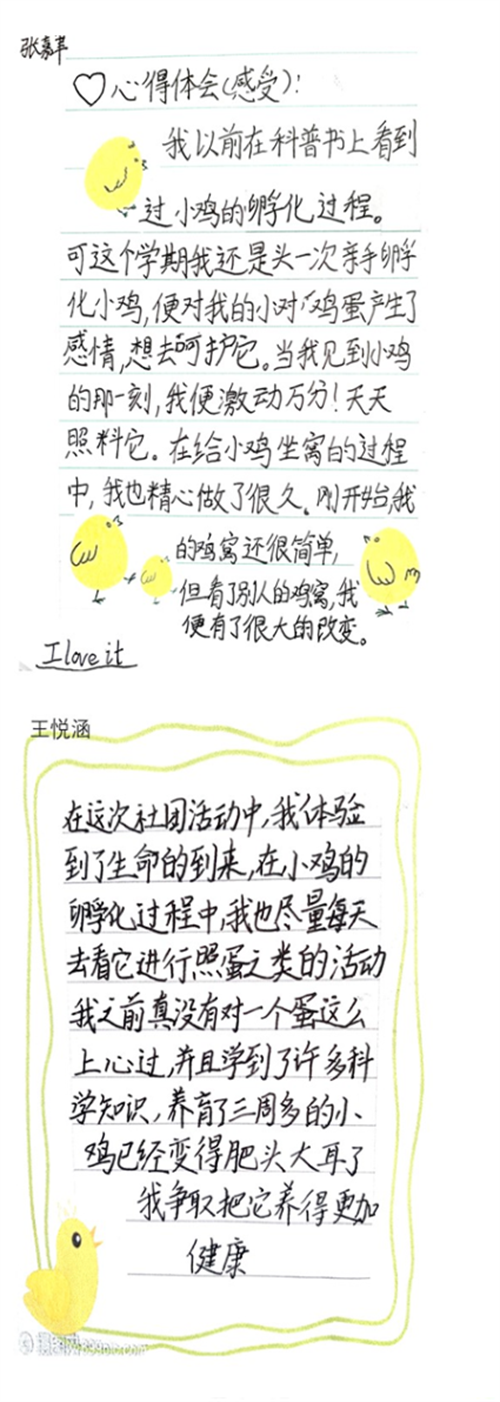 张嘉芈
♡心得体会(感受):
我以前在科普书上看到
过小鸡的孵化过程。
可这个学期我还是头一次亲手孵
化小鸡,便对我的小对鸡蛋产生了
感情,想去呵护它。当我见到小鸡
的那一刻,我便激动万分!天天
照料它。在给小鸡坐窝的过程
中,我也精心做了很久。刚开始,我
的鸡窝还很简单,
但看了别人的鸡窝,我
便有了很大的改变。
I love it
王悦涵
在这次社团活动中,我体验
到了生命的到来,在小鸡的
孵化过程中,我也尽量每天
去看它进行照蛋之类的活动
我之前真没有对一个蛋这么
上心过,并且学到了许多科
学知识,养育了三周多的小
鸡已经变得肥头大耳了
我争取把它养得更加
健康